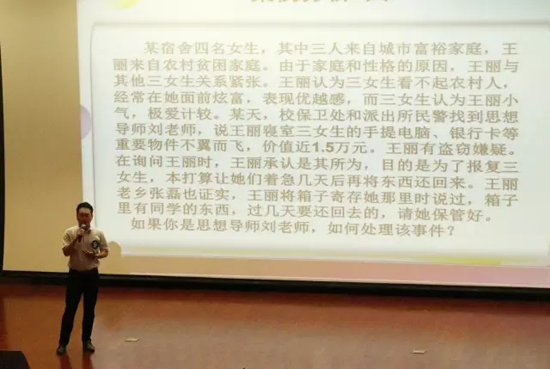 某宿舍四名女生，其中三人来自城市富裕家庭，王
丽来自农村贫困家庭。由于家庭和性格的原因，王丽与
其他三女生关系紧张。王丽认为三女生看不起农村人，
经常在她面前炫富，表现优越感，而三女生认为王丽小
气，极爱计较。某天，校保卫处和派出所民警找到思想
导师刘老师，说王丽寝室三女生的手提电脑、银行卡等
重要物件不翼而飞，价值近1.5万元。王丽有盗窃嫌疑。
在询问王丽时，王丽承认是其所为，目的是为了报复三
女生，本打算让她们着急几天后再将东西还回来。王丽
老乡张磊也证实，王丽将箱子寄存她那里时说过，箱子
里有同学的东西，过几天要还回去的，请她保管好。
如果你是思想导师刘老师，如何处理该事件？